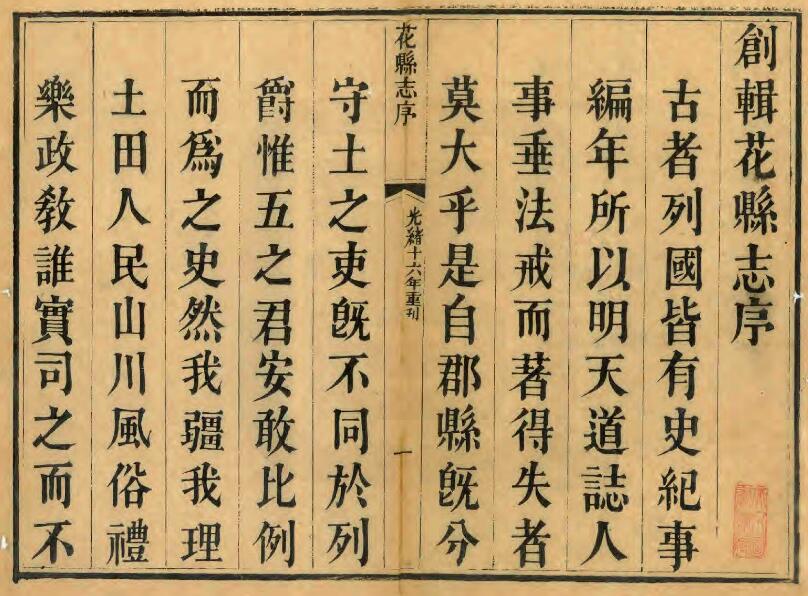 創輯花縣志序
古者列國皆有史紀事
編年所以明天道誌人
事垂法戒而著得失者
莫大乎是自郡縣旣分
花縣志序
光緒十六年重刊
一
守土之吏旣不同於列
爵惟五之君安敢比例
而爲之史然我疆我理
土田人民山川風俗禮
樂政敎誰實司之而不